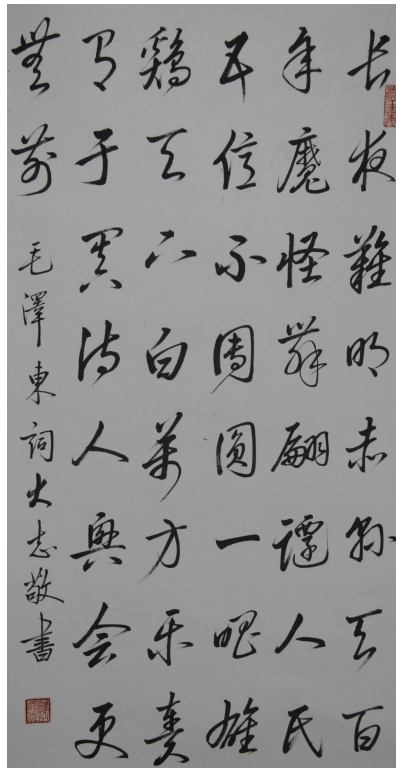 长夜難明赤縣天百
年魔怪舞翩躚人民
五億不團圓一唱雄
鷄天下白萬方乐奏
有于闐诗人興会更
無前
毛澤東詞大志敬書